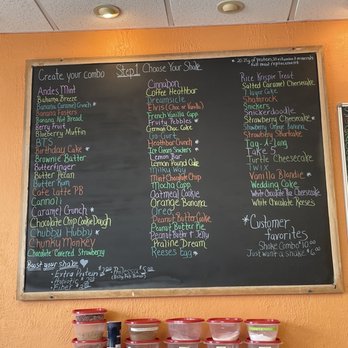 * 20-25g of protein, 21 vitamins & minerals
full meal replacement
Create your combo Step 1 Choose Your Shake
Andes Mint
Bahama Breeze
Banana Caramel Crunch *
Banana Fosters
Banana Nut Bread
Berry Fruit
Blueberry Muffin
BTS
Birthday Cake *
Brownie Batter
Butterfinger
Butter Pecan
Butter Rum
Cafe Latte PB
Cannoli
Caramel Crunch *
Chocolate Chip Cookie Dough
Chubby Hubby *
Chunky Monkey
Chocolate Covered Strawberry
Cinnabon
Coffee Heathbar
Dreamsicle
Elvis (Choc or Vanilla)
French Vanilla Capp
Fruity Pebbles *
German Choc Cake
Go-Gurt
Heathbar Crunch *
Ice Cream Snickers *
Lemon Bar
Lemon Pound Cake
Milky Way
Mint Chocolate Chip
Mocha Capp
Oatmeal Cookie
Orange Banana
Oreo
Peanut Butter Cookie
Peanut Butter Pie
Peanut Butter & Jelly
Praline Dream
Reeses Egg *
Rice Krispie Treat
Salted Caramel Cheesecake
7 Layer Cake
Shamrock
Snickers
Snickerdoodle
Strawberry Cheesecake *
Strawberry Orange Banana
Strawberry Shortcake
Tag-A-Long
Take 5
Turtle Cheesecake
Twix
Vanilla Blondie *
Wedding Cake
White Chocolate Mac Cheesecake
White Chocolate Reeses
*Customer
Favorites
Shake Combo $10.00
Just want a shake
Boost your shake
• Extra Protein
• Fiber